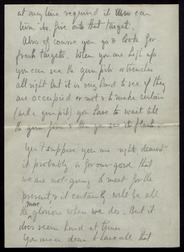 at any time required it can
turn to, fire onto that target.
Also of course you go & look for
fresh targets. When you are left up
you can see the gun pits & trenches
all right but it is very hard to see if they
are occupied or not & to make certain
(with a gun pit) you have to wait till
the gun fires & then you see its flash.
Yes I suppose you are right dearest
it probably is for our good that
we are not going to meet for the
present & it certainly will be all
the more glorious when we do. But it
does seem hard at times
You mean dear I have all that